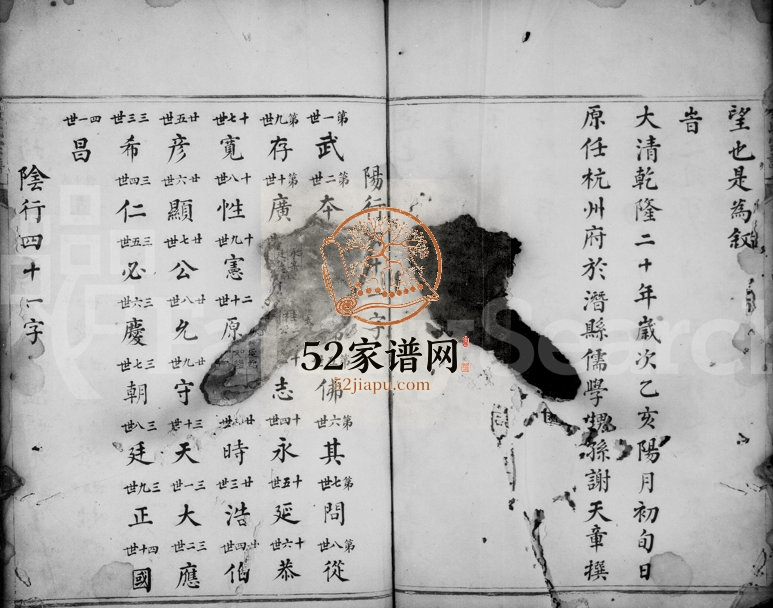 望也是為敘
旹
大清乾隆二十年歲次乙亥陽月初旬日
原任杭州府於潛縣儒學 孫謝天章撰
陽行 字
第一世 武 第二世 本 佛 第六世 其 第七世 問 第八世 從
第九世 存 第十世 廣 志 十四世 永 十五世 延 十六世 恭
十七世 寬 十八世 性 十九世 憲 二十世 原 時 廿三世 浩 廿四世 伯
廿五世 彥 廿六世 顯 廿七世 公 廿八世 允 廿九世 守 三十世 天 三一世 大 三二世 應
三三世 希 三四世 仁 三五世 必 三六世 慶 三七世 朝 三八世 廷 三九世 正 四十世 國
四一世 昌
陰行四十一字
52家谱网
52jiapu.com
FamilySearch